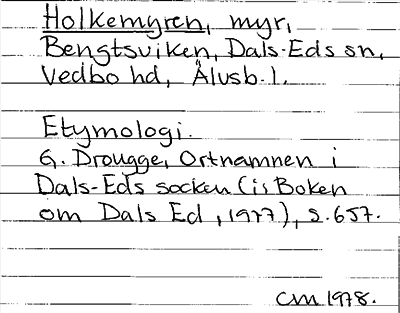 Holkemyren, myr,
Bengtsviken, Dals-Eds sn,
Vedbo hd, Älvsb. l.
Etymologi.
G. Drougge, Ortnamnen i
Dals-Eds socken (i: Boken
om Dals Ed, 1977), s. 657.
CM 1978.